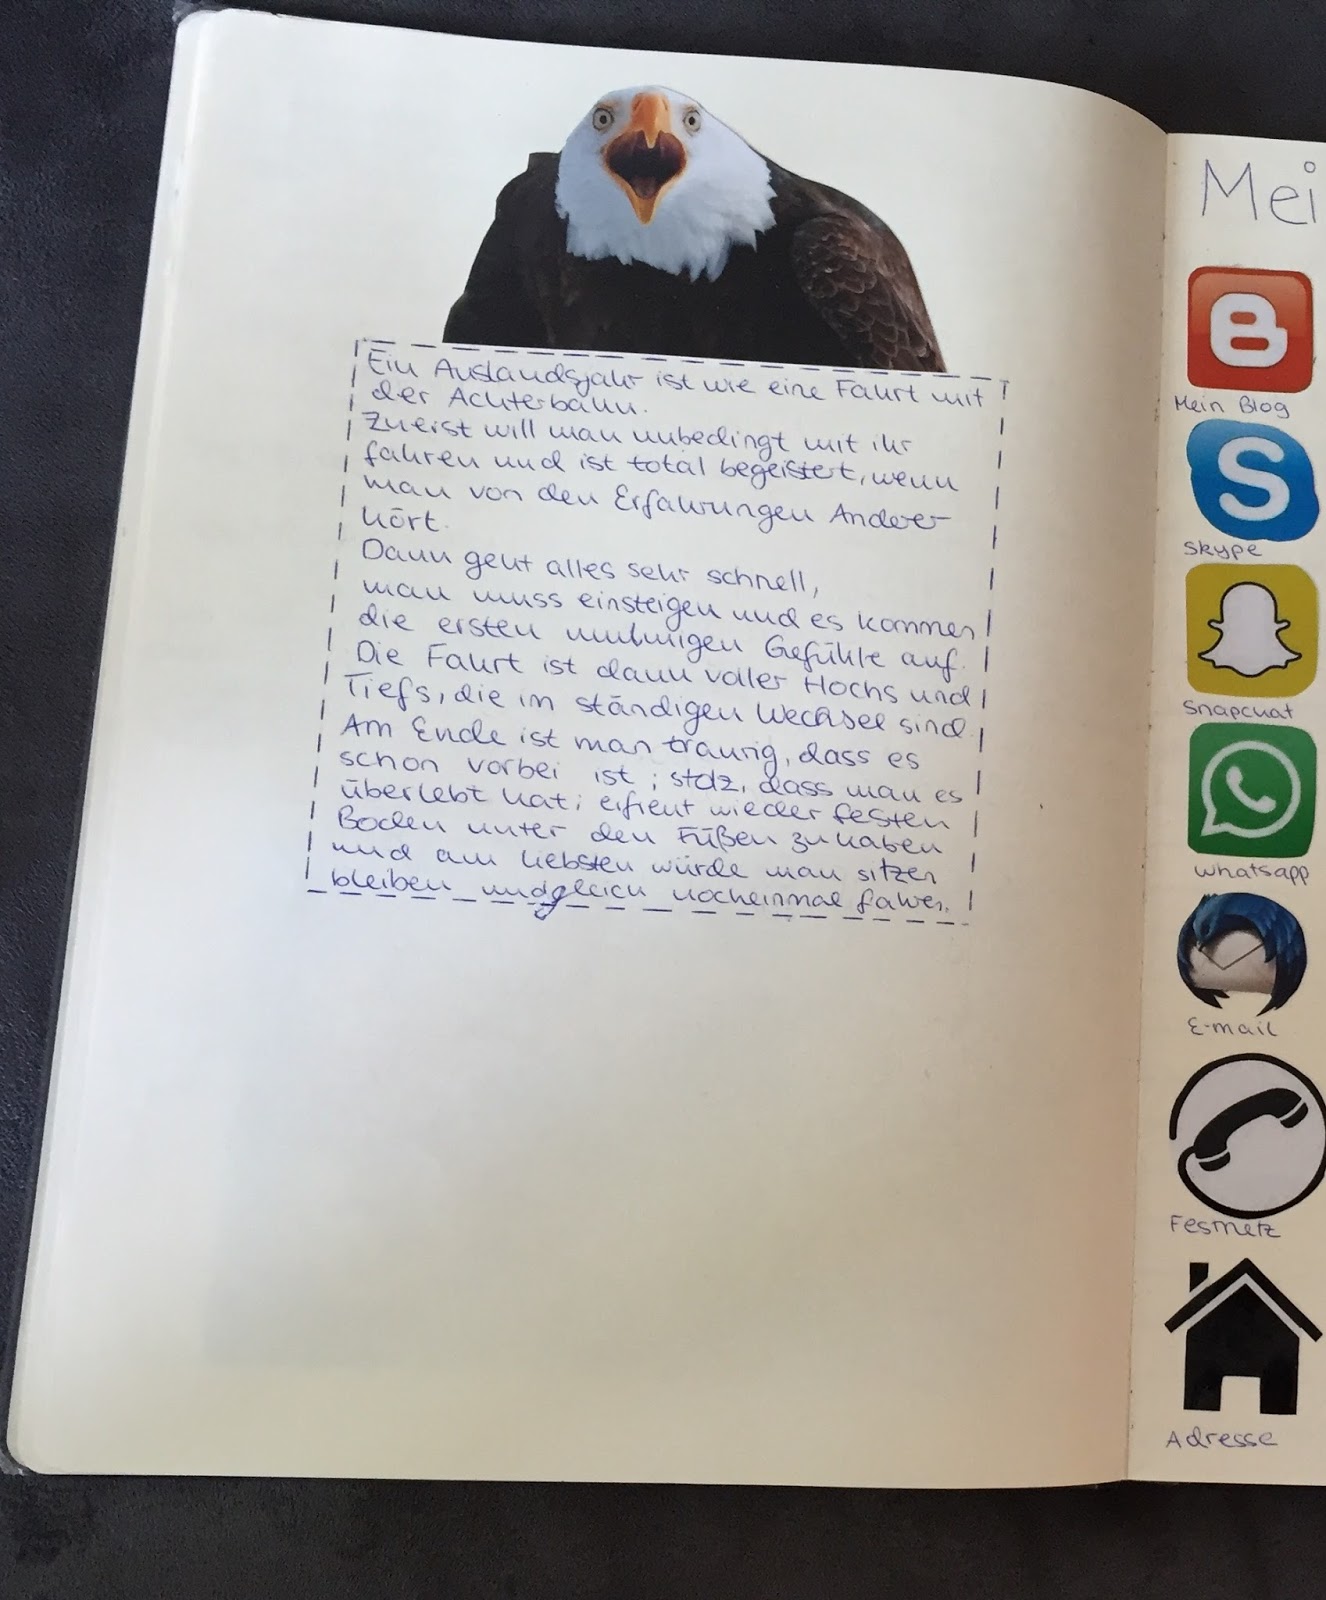 Ein Auslandsjahr ist wie eine Fahrt mit
der Achterbahn.
Zuerst will man unbedingt mit ihr
fahren und ist total begeistert, wenn
man von den Erfahrungen Anderer
hört.
Dann geht alles sehr schnell,
man muss einsteigen und es kommen
die ersten mulmigen Gefühle auf.
Die Fahrt ist dann voller Hochs und
Tiefs, die im ständigen Wechsel sind.
Am Ende ist man traurig, dass es
schon vorbei ist ; stolz, dass man es
überlebt hat ; erfreut wieder festen
Boden unter den Füßen zu haben
und am liebsten würde man sitzen
bleiben und gleich nocheinmal fahren.
Mei
Mein Blog
S
Skype
Snapchat
Whatsapp
E-mail
Festnetz
Adresse